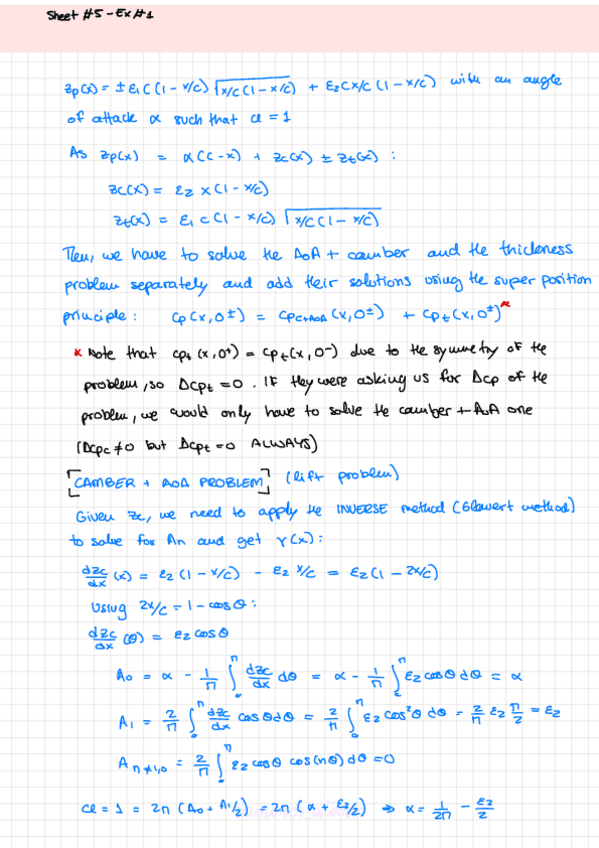 Sheet #5 - Ex#1
zp(x) = ± ε1 C (1 - x/c) √(x/c (1 - x/c)) + ε2 C x/c (1 - x/c) with an angle
of attack α such that cl = 1
As zp(x) = α(c-x) + zc(x) ± zt(x) :
zc(x) = ε2 x (1 - x/c)
zt(x) = ε1 c (1 - x/c) √(x/c (1 - x/c))
Then, we have to solve the AoA + camber and the thickness
problem separately and add their solutions using the super position
principle: cp(x, 0±) = cpc+AoA (x, 0±) + cpt (x, 0±)*
* Note that cpt (x, 0+) = cpt (x, 0-) due to the symmetry of the
problem, so Δcpt = 0. If they were asking us for Δcp of the
problem, we would only have to solve the camber + AoA one
(Δcpc ≠ 0 but Δcpt = 0 ALWAYS)
[CAMBER + AOA PROBLEM] (lift problem)
Given zc, we need to apply the INVERSE method (Glauert method)
to solve for An and get γ(x):
dzc/dx (x) = ε2 (1 - x/c) - ε2 x/c = ε2 (1 - 2x/c)
Using 2x/c = 1 - cosθ:
dzc/dx (θ) = ε2 cosθ
A0 = α - 1/π ∫0^π dzc/dx dθ = α - 1/π ∫0^π ε2 cosθ dθ = α
A1 = 2/π ∫0^π dzc/dx cosθ dθ = 2/π ∫0^π ε2 cos²θ dθ = 2/π ε2 π/2 = ε2
An≠1,0 = 2/π ∫0^π ε2 cosθ cos(nθ) dθ = 0
cl = 1 = 2π (A0 + A1/2) = 2π (α + ε2/2) ⇒ α = 1/2π - ε2/2